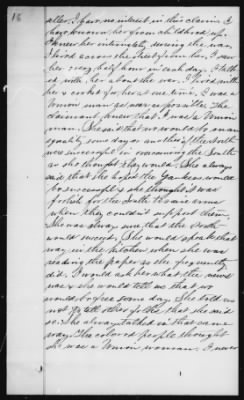 16
after. I have no interest in this claim. I
have known her from childhood up.
I knew her intimately during the war.
I lived across the street from her. I saw
her every half hour in each day. I talk
ed with her about the war. I lived with
her & cooked for her at one time. I was a
Union man as near as possible. The
claimant knew that I was a Union
man. She said that we would be men
equally some day as one thing if the north
was successful in overcoming the South
as she thought they would. She always
said that she hoped the Yankees would
be successful & she thought it was
foolish for the South to raise arms
when they couldn't support them.
She was always sure that the North
would succeed. She would speak that
way in the kitchen when she was
reading the paper as she frequently
did. I would ask her what the news
was & she would tell us that we
would be free some day. She told us
not to tell other folks that she said
so. She always talked in that same
way. The colored people thought
she was a Union woman. I never